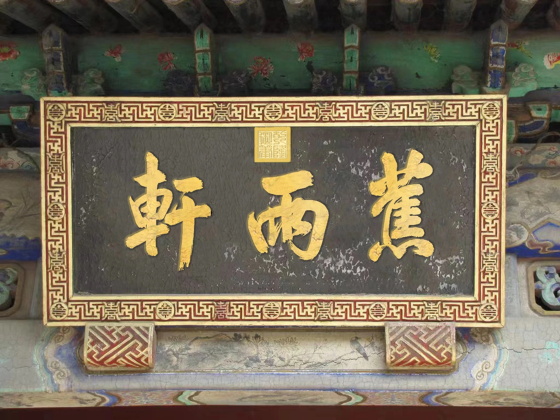 蕉雨軒